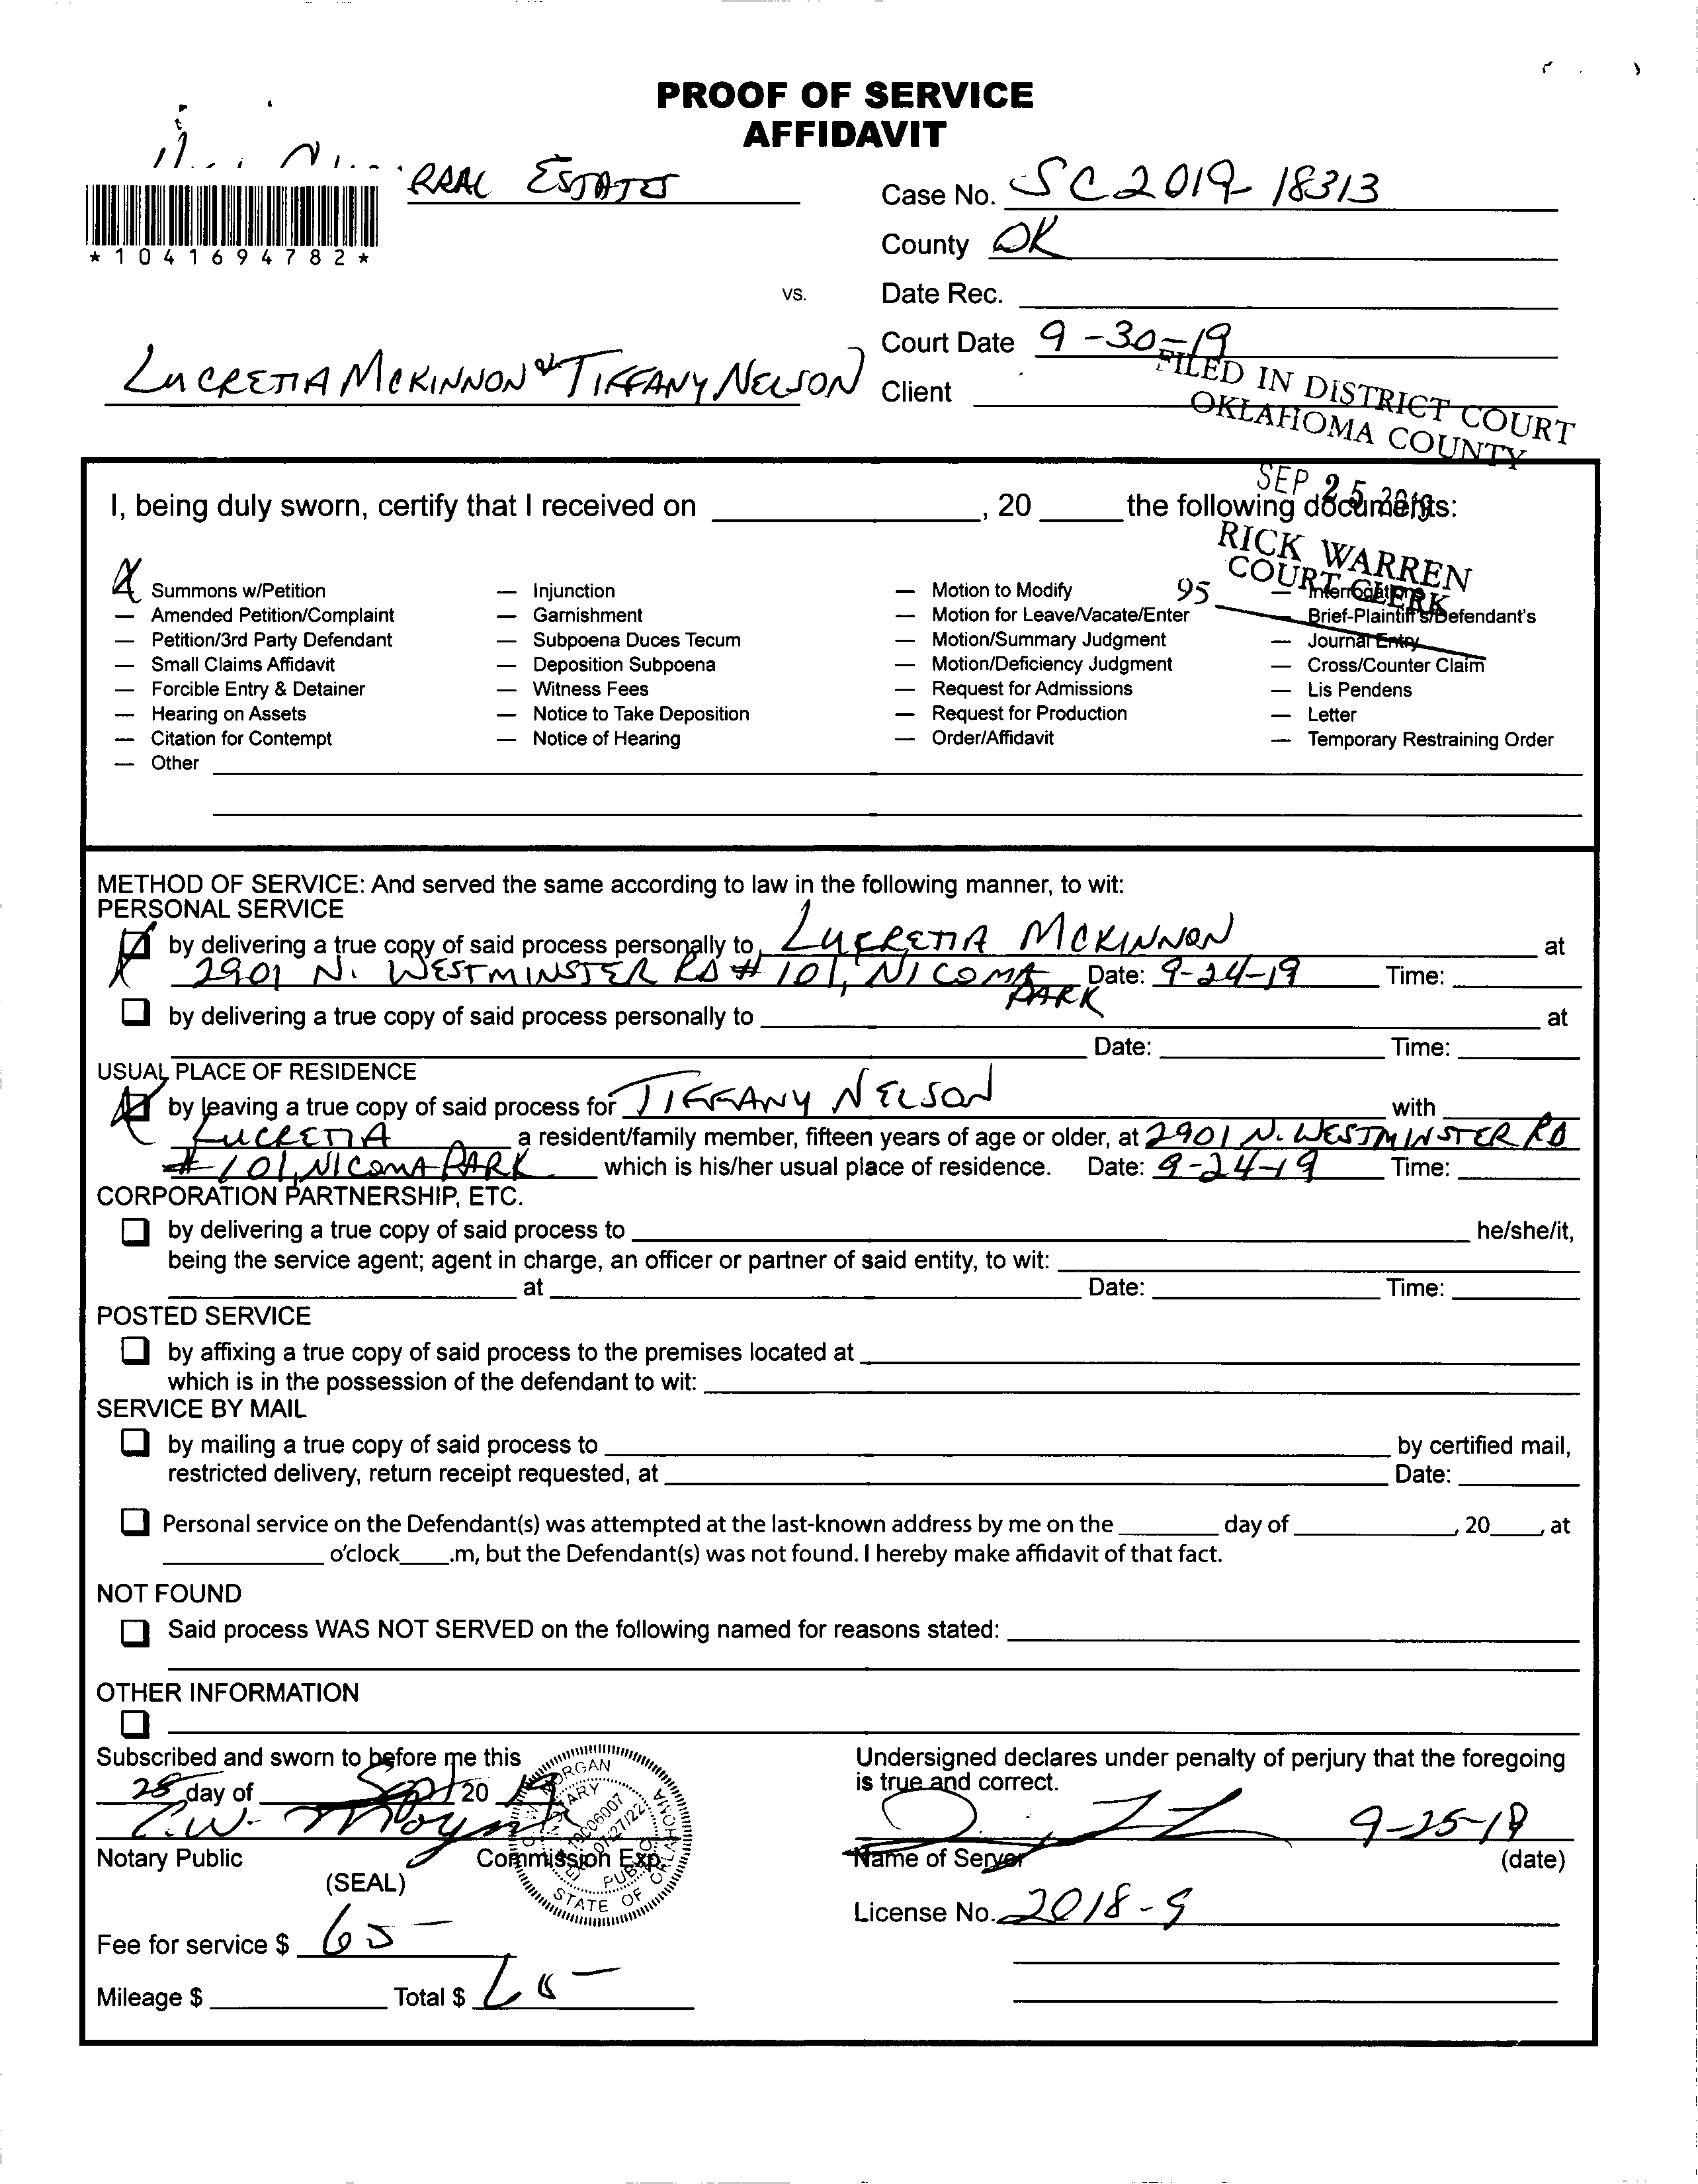 PROOF OF SERVICE
AFFIDAVIT
ESTATES
*1041694782*
Case No. SC2019-18313
County OK
vs.
Date Rec.
Court Date 9-30-19
LUCRETIA MCKINNON & TIFFANY NELSON
Client
FILED IN DISTRICT COURT
OKLAHOMA COUNTY
SEP 25 2019
RICK WARREN
COURT CLERK
95
I, being duly sworn, certify that I received on ____, 20 ____ the following documents:
X Summons w/Petition
— Amended Petition/Complaint
— Petition/3rd Party Defendant
— Small Claims Affidavit
— Forcible Entry & Detainer
— Hearing on Assets
— Citation for Contempt
— Other
— Injunction
— Garnishment
— Subpoena Duces Tecum
— Deposition Subpoena
— Witness Fees
— Notice to Take Deposition
— Notice of Hearing
— Motion to Modify
— Motion for Leave/Vacate/Enter
— Motion/Summary Judgment
— Motion/Deficiency Judgment
— Request for Admissions
— Request for Production
— Order/Affidavit
— Interrogatories
— Brief-Plaintiff's/Defendant's
— Journal Entry
— Cross/Counter Claim
— Lis Pendens
— Letter
— Temporary Restraining Order
METHOD OF SERVICE: And served the same according to law in the following manner, to wit:
PERSONAL SERVICE
by delivering a true copy of said process personally to LUCRETIA MCKINNON at
2901 N. WESTMINSTER RD # 101, NICOMA PARK Date: 9-24-19 Time:
by delivering a true copy of said process personally to ____ at
Date: ____ Time:
USUAL PLACE OF RESIDENCE
by leaving a true copy of said process for TIFFANY NELSON with
LUCRETIA a resident/family member, fifteen years of age or older, at 2901 N. WESTMINSTER RD
# 101, NICOMA PARK which is his/her usual place of residence. Date: 9-24-19 Time:
CORPORATION PARTNERSHIP, ETC.
by delivering a true copy of said process to ____ he/she/it,
being the service agent; agent in charge, an officer or partner of said entity, to wit:
at ____ Date: ____ Time:
POSTED SERVICE
by affixing a true copy of said process to the premises located at
which is in the possession of the defendant to wit:
SERVICE BY MAIL
by mailing a true copy of said process to ____ by certified mail,
restricted delivery, return receipt requested, at ____ Date:
Personal service on the Defendant(s) was attempted at the last-known address by me on the ____ day of ____, 20____, at
____ o'clock____.m, but the Defendant(s) was not found. I hereby make affidavit of that fact.
NOT FOUND
Said process WAS NOT SERVED on the following named for reasons stated:
OTHER INFORMATION
Subscribed and sworn to before me this
25 day of Sept 20 19
Notary Public
Commission Exp.
(SEAL)
MORGAN
NOTARY
19006007
EXP. 07/27/22
PUBLIC
STATE OF OKLAHOMA
Fee for service $ 65-
Mileage $ ____ Total $
Undersigned declares under penalty of perjury that the foregoing
is true and correct.
9-25-19
Name of Server (date)
License No. 2018-9